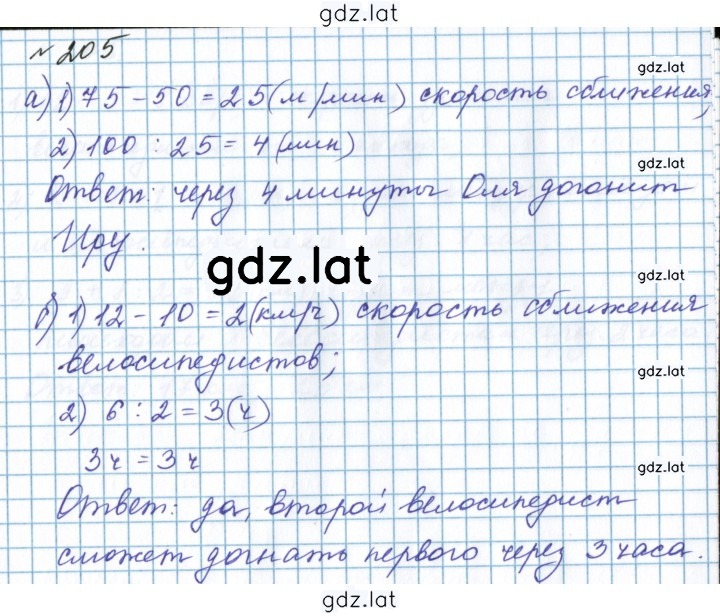 gdz.lat
№ 205
gdz.lat
а) 1) 75 - 50 = 25 (м/мин) скорость сближения;
2) 100 : 25 = 4 (мин)
gdz.lat
Ответ: через 4 минуты Оля догонит
Иру.
gdz.lat
gdz.lat
б) 1) 12 - 10 = 2 (км/ч) скорость сближения
велосипедистов;
gdz.lat
2) 6 : 2 = 3 (ч)
3 ч = 3 ч
gdz.lat
Ответ: да, второй велосипедист
сможет догнать первого через 3 часа.
gdz.lat